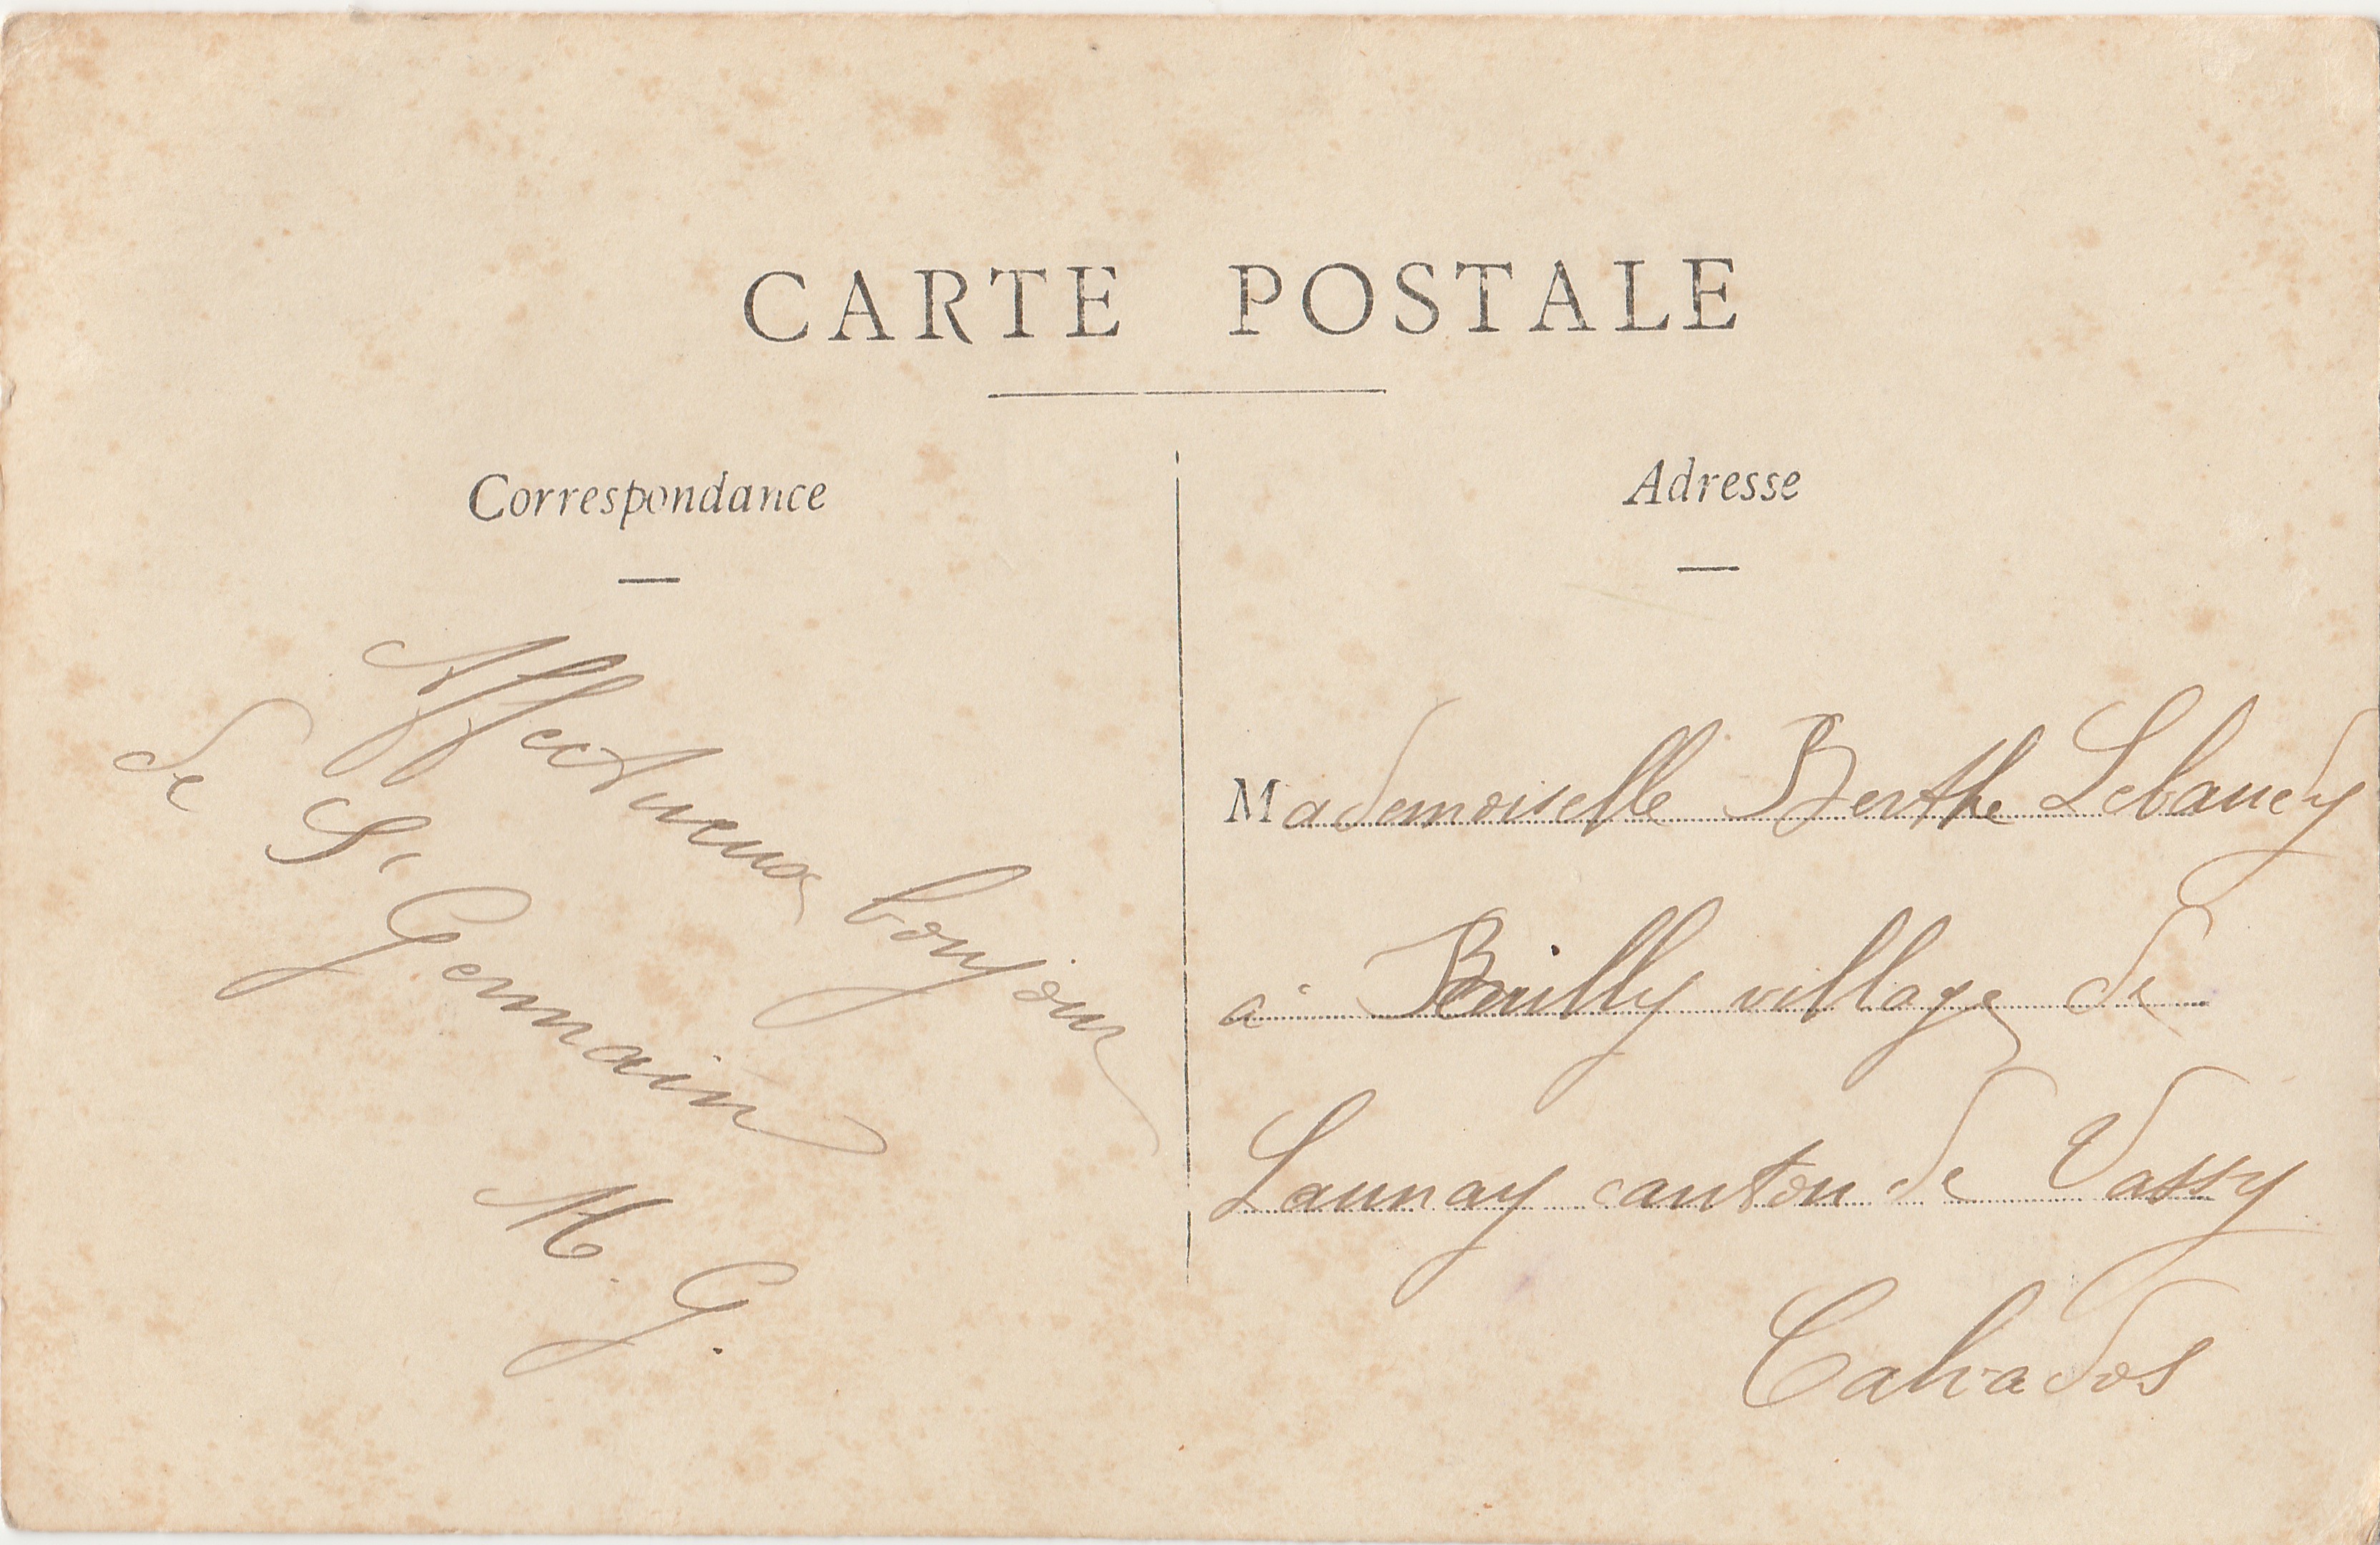 CARTE POSTALE
Correspondance
Affectueux bonjour
de St Germain
M. G.
Adresse
Mademoiselle Berthe Lebaudy
à village de
Launay canton de Vassy
Calvados